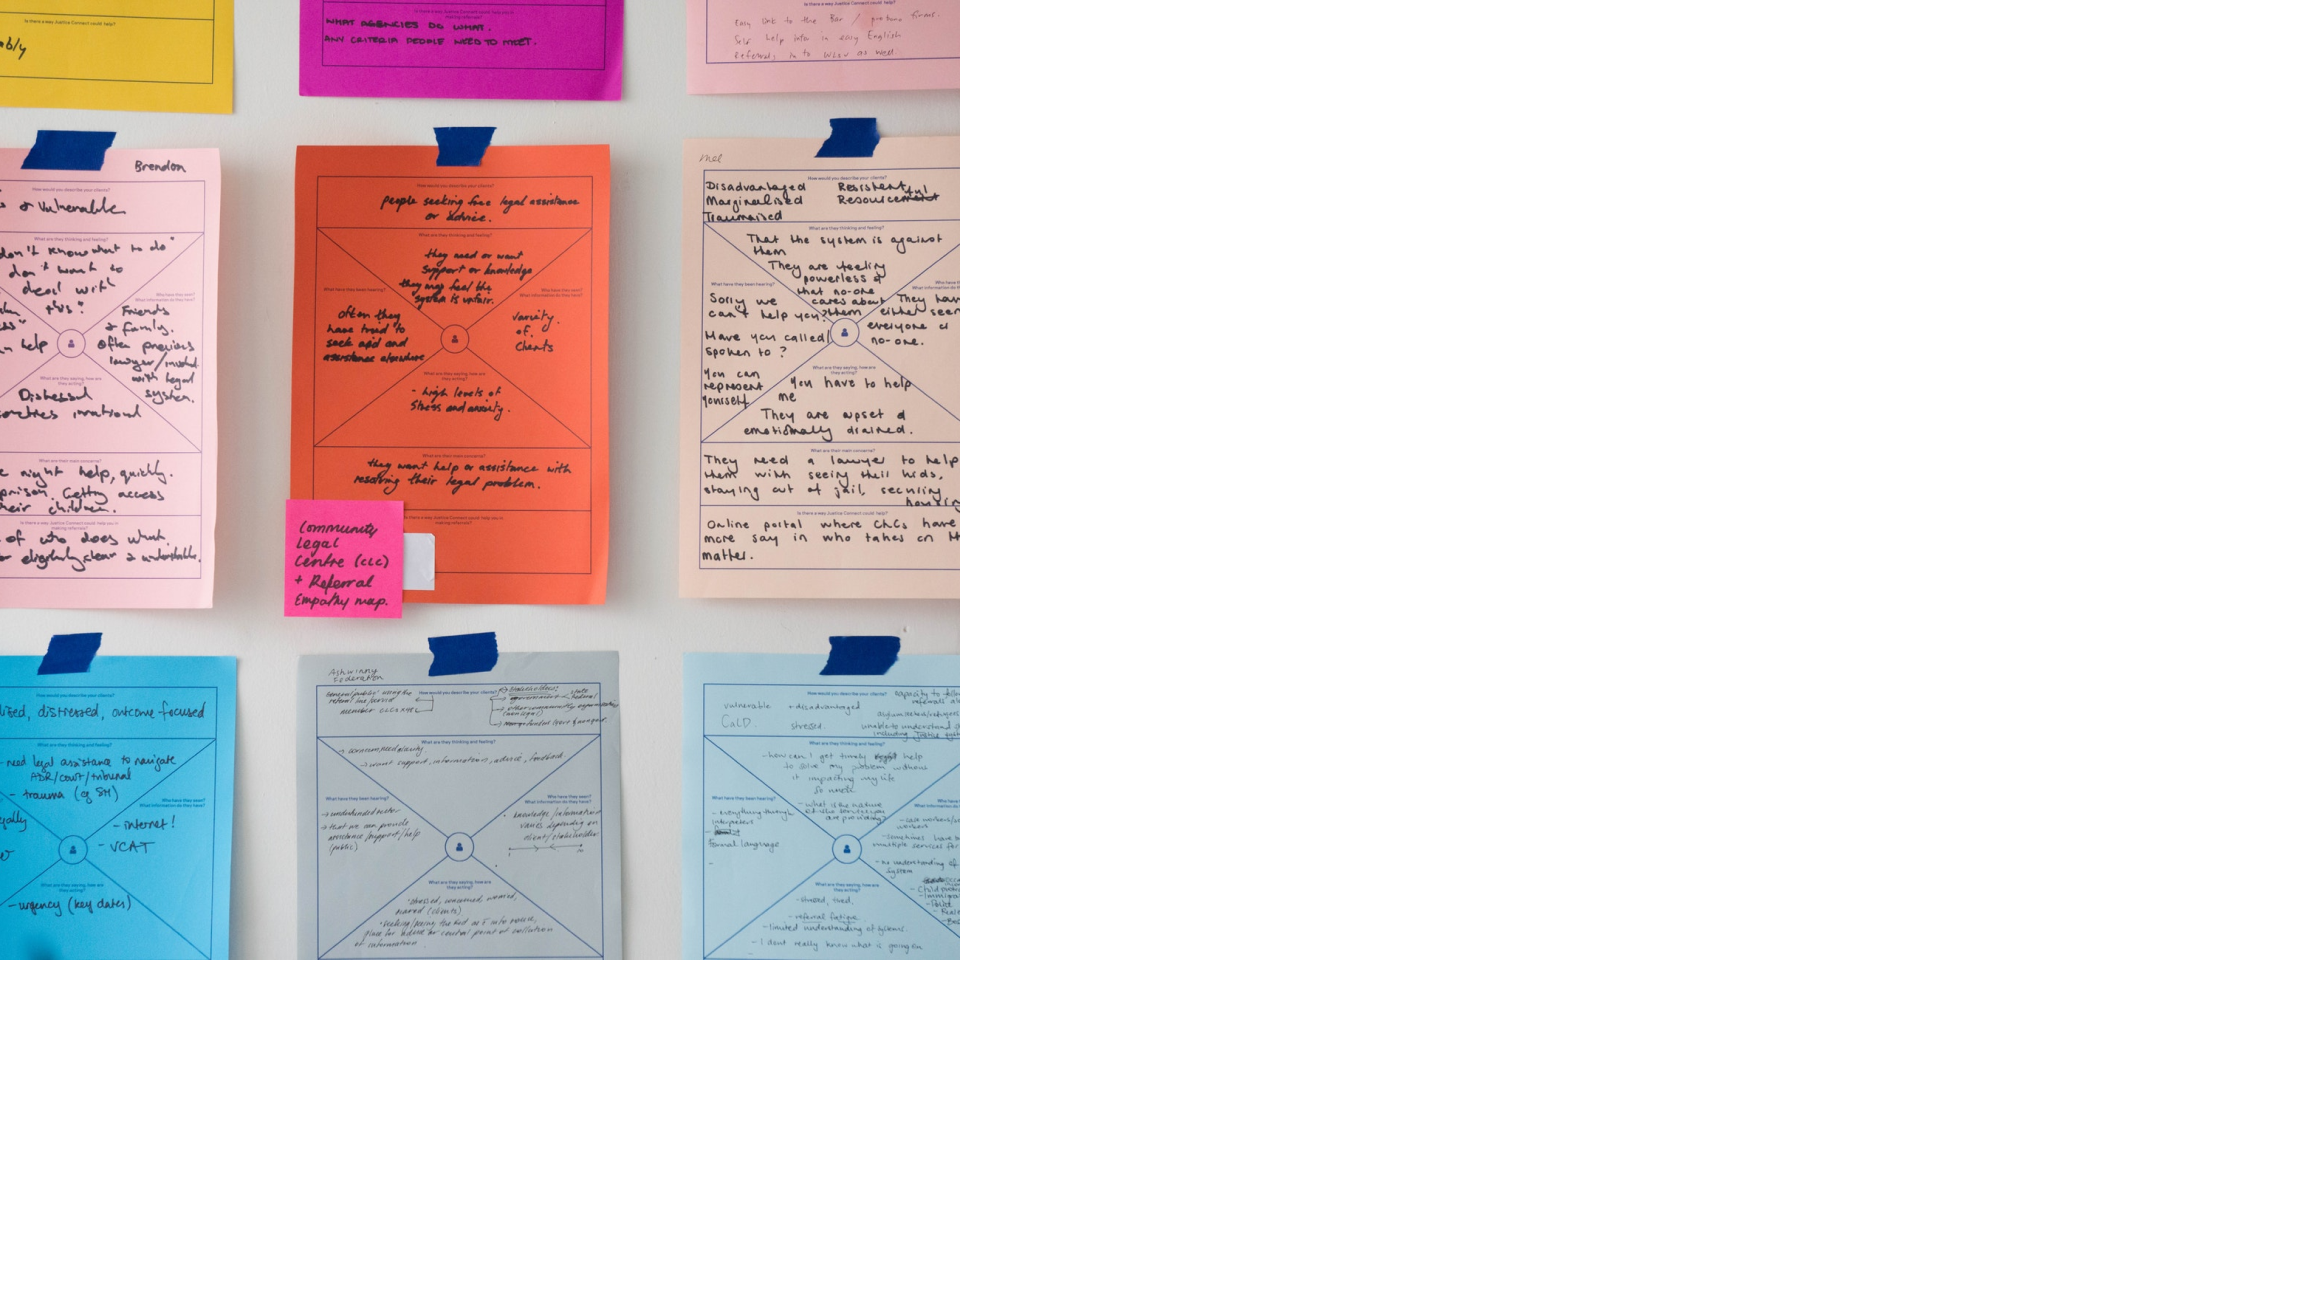 Is there a way Justice Connect could help?
ably
WHAT AGENCIES DO WHAT.
ANY CRITERIA PEOPLE NEED TO MEET.
Is there a way Justice Connect could help?
Easy link to the Bar / probono firms.
Self help info in easy English
Referrals in to
as well.
Brendon
How would you describe your clients?
& Vulnerable
What are they thinking and feeling?
don't know what to do"
don't want to
deal with
this"
Who have they seen?
What information do they have?
Friends
& family.
Often previous
lawyer/
with legal
system.
help
What are they saying, how are
they acting?
Distressed
irrational
What are their main concerns?
might help, quickly.
prison. Getting access
their children.
Is there a way Justice Connect could help you in
making referrals?
of who does what.
eligibility clear &
How would you describe your clients?
people seeking free legal assistance
or advice.
What are they thinking and feeling?
they need or want
support or knowledge
they may feel the
system is unfair.
What have they been hearing?
often they
have tried to
seek aid and
assistance elsewhere
Who have they seen?
What information do they have?
variety
of
clients
What are they saying, how are
they acting?
- high levels of
stress and anxiety.
What are their main concerns?
they want help or assistance with
resolving their legal problem.
Is there a way Justice Connect could help you in
making referrals?
Community
Legal
Centre (CLC)
+ Referral
Empathy map.
Mel
How would you describe your clients?
Disadvantaged
Marginalised
Traumatised
Resistent
Resourceful
What are they thinking and feeling?
That the system is against
them
They are feeling
powerless &
that no-one
cares about
them
What have they been hearing?
Sorry we
can't help you?
Have you called/
spoken to?
You can
represent
yourself
They have
either seen
everyone or
no-one.
What are they saying, how are
they acting?
You have to help
me
They are upset &
emotionally drained.
What are their main concerns?
They need a lawyer to help
them with seeing their kids,
staying out of jail, securing
housing
Is there a way Justice Connect could help?
Online portal where CLCs have
more say in who takes on
matter.
How would you describe your clients?
distressed, outcome focused
What are they thinking and feeling?
- need legal assistance to navigate
ADR/court/tribunal
- trauma (eg SH)
Who have they seen?
What information do they have?
- internet!
- VCAT
What are they saying, how are
they acting?
- urgency (key dates)
Federation
How would you describe your clients?
general public using the
referral line/service
member CLCs x 49
stakeholders:
state
federal
What are they thinking and feeling?
→ want support, information, advice, feedback
What have they been hearing?
→ underfunded sector
→ that we can provide
assistance/support/help
(public)
Who have they seen?
What information do they have?
knowledge/information
varies depending on
client/stakeholder
What are they saying, how are
they acting?
place for advice or central point of collation
of information
How would you describe your clients?
vulnerable + disadvantaged
CaLD.
stressed.
capacity to follow
referrals
asylum seekers/refugees
unable to understand
including justice system
What are they thinking and feeling?
- how can I get timely help
to solve my problem without
it impacting my life
so much
- what is the nature
of the service you
are providing?
What have they been hearing?
- everything through
interpreters
Formal language
-
- case workers/
workers
- sometimes have
multiple services for
- no understanding of
system
What are they saying, how are
they acting?
- stressed, tired,
- referral fatigue.
- limited understanding of systems.
- I dont really know what is going on